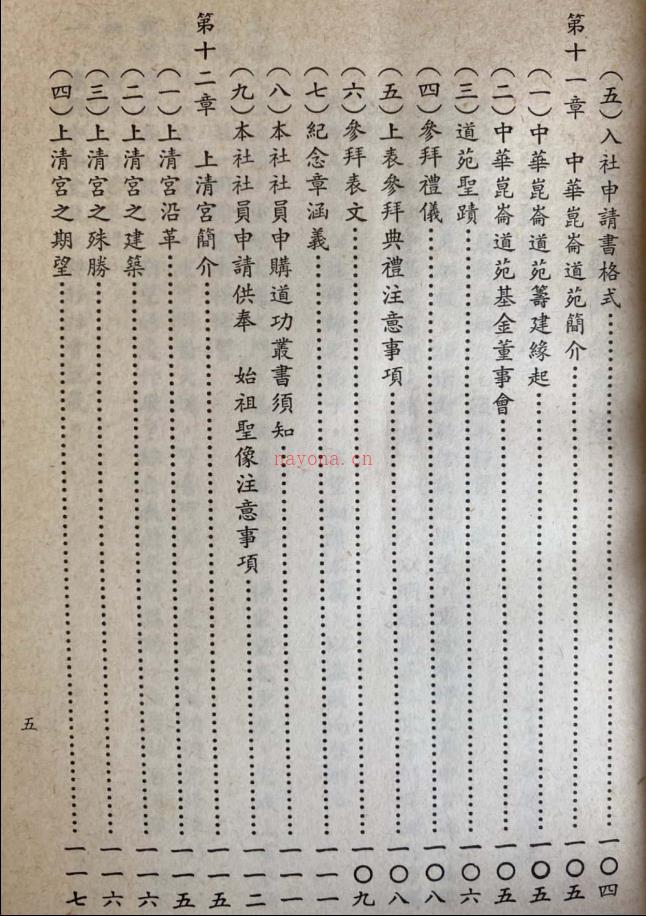 (五)入社申請書格式……一〇四
第十一章　中華崑崙道苑簡介……一〇五
(一)中華崑崙道苑籌建緣起……一〇五
(二)中華崑崙道苑基金董事會……一〇五
(三)道苑聖蹟……一〇六
(四)參拜禮儀……一〇八
(五)上表參拜典禮注意事項……一〇八
(六)參拜表文……一〇九
(七)紀念章涵義……一一一
(八)本社社員申購道功叢書須知……一一一
(九)本社社員申請供奉　始祖聖像注意事項……一一二
第十二章　上清宮簡介……一一五
(一)上清宮沿革……一一五
(二)上清宮之建築……一一六
(三)上清宮之殊勝……一一六
(四)上清宮之期望……一一七
五
nayona.cn